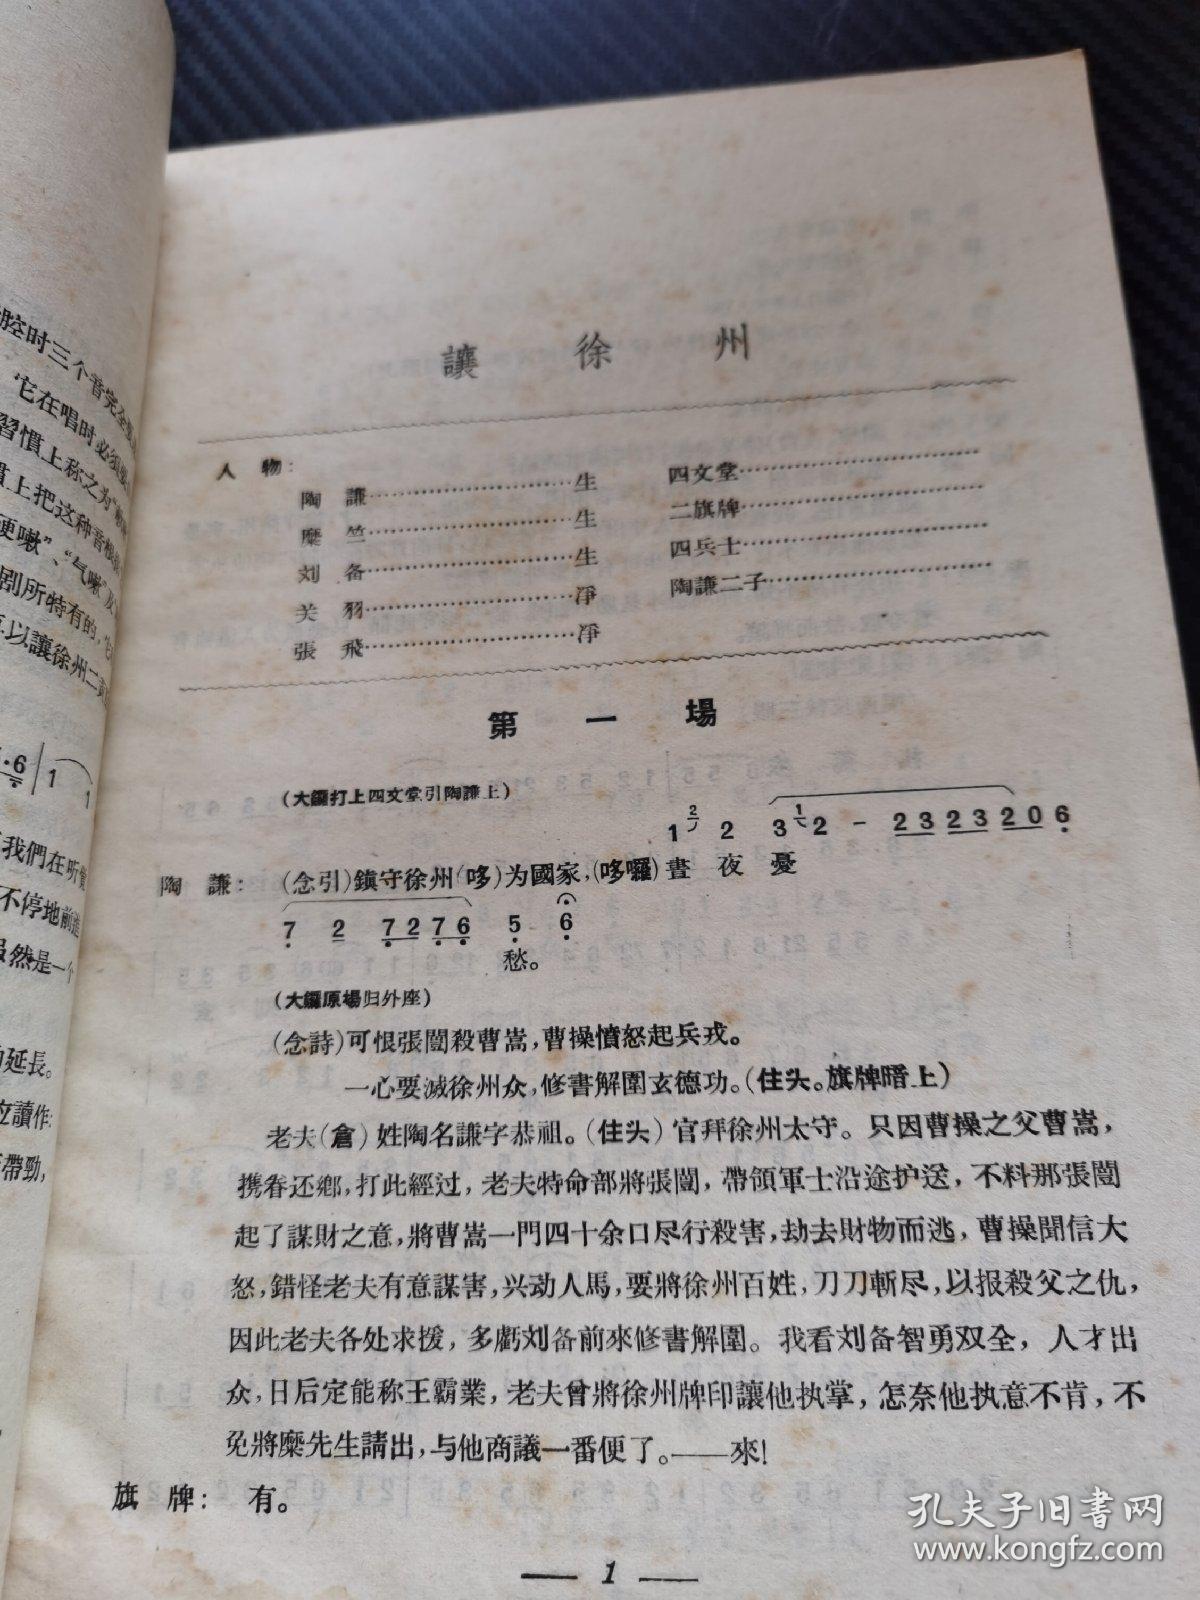 腔时三个音完全
它在唱时必須
習慣上称之为
慣上把这种音
梗嗽”、“气嗽”及
剧所特有的,
以讓徐州二
6 | 1 1
我們在听
不停地前進
虽然是一个
的延長。
立讀作:
帶勁,
讓 徐 州
人 物:
陶 謙……………………生
糜 竺……………………生
刘 备……………………生
关 羽……………………净
張 飛……………………净
四文堂……………………
二旗牌……………………
四兵士……………………
陶謙二子……………………
第 一 場
(大鑼打上四文堂引陶謙上)
1 2 2 3 1 2 - 2 3 2 3 2 0 6
陶 謙: (念引)鎮守徐州(哆)为國家,(哆囉)晝 夜 憂
7 2 7 2 7 6 5 6
愁。
(大鑼原場归外座)
(念詩)可恨張闓殺曹嵩,曹操憤怒起兵戎。
一心要滅徐州众,修書解圍玄德功。(住头。旗牌暗上)
老夫(倉)姓陶名謙字恭祖。(住头)官拜徐州太守。只因曹操之父曹嵩,
携眷还鄉,打此經过,老夫特命部將張闓,帶領軍士沿途护送,不料那張闓
起了謀財之意,將曹嵩一門四十余口尽行殺害,劫去財物而逃,曹操聞信大
怒,錯怪老夫有意謀害,兴动人馬,要將徐州百姓,刀刀斬尽,以报殺父之仇,
因此老夫各处求援,多虧刘备前來修書解圍。我看刘备智勇双全,人才出
众,日后定能称王霸業,老夫曾將徐州牌印讓他执掌,怎奈他执意不肯,不
免將糜先生請出,与他商議一番便了。——來!
旗 牌: 有。
— 1 —
孔夫子旧书网
www.kongfz.com